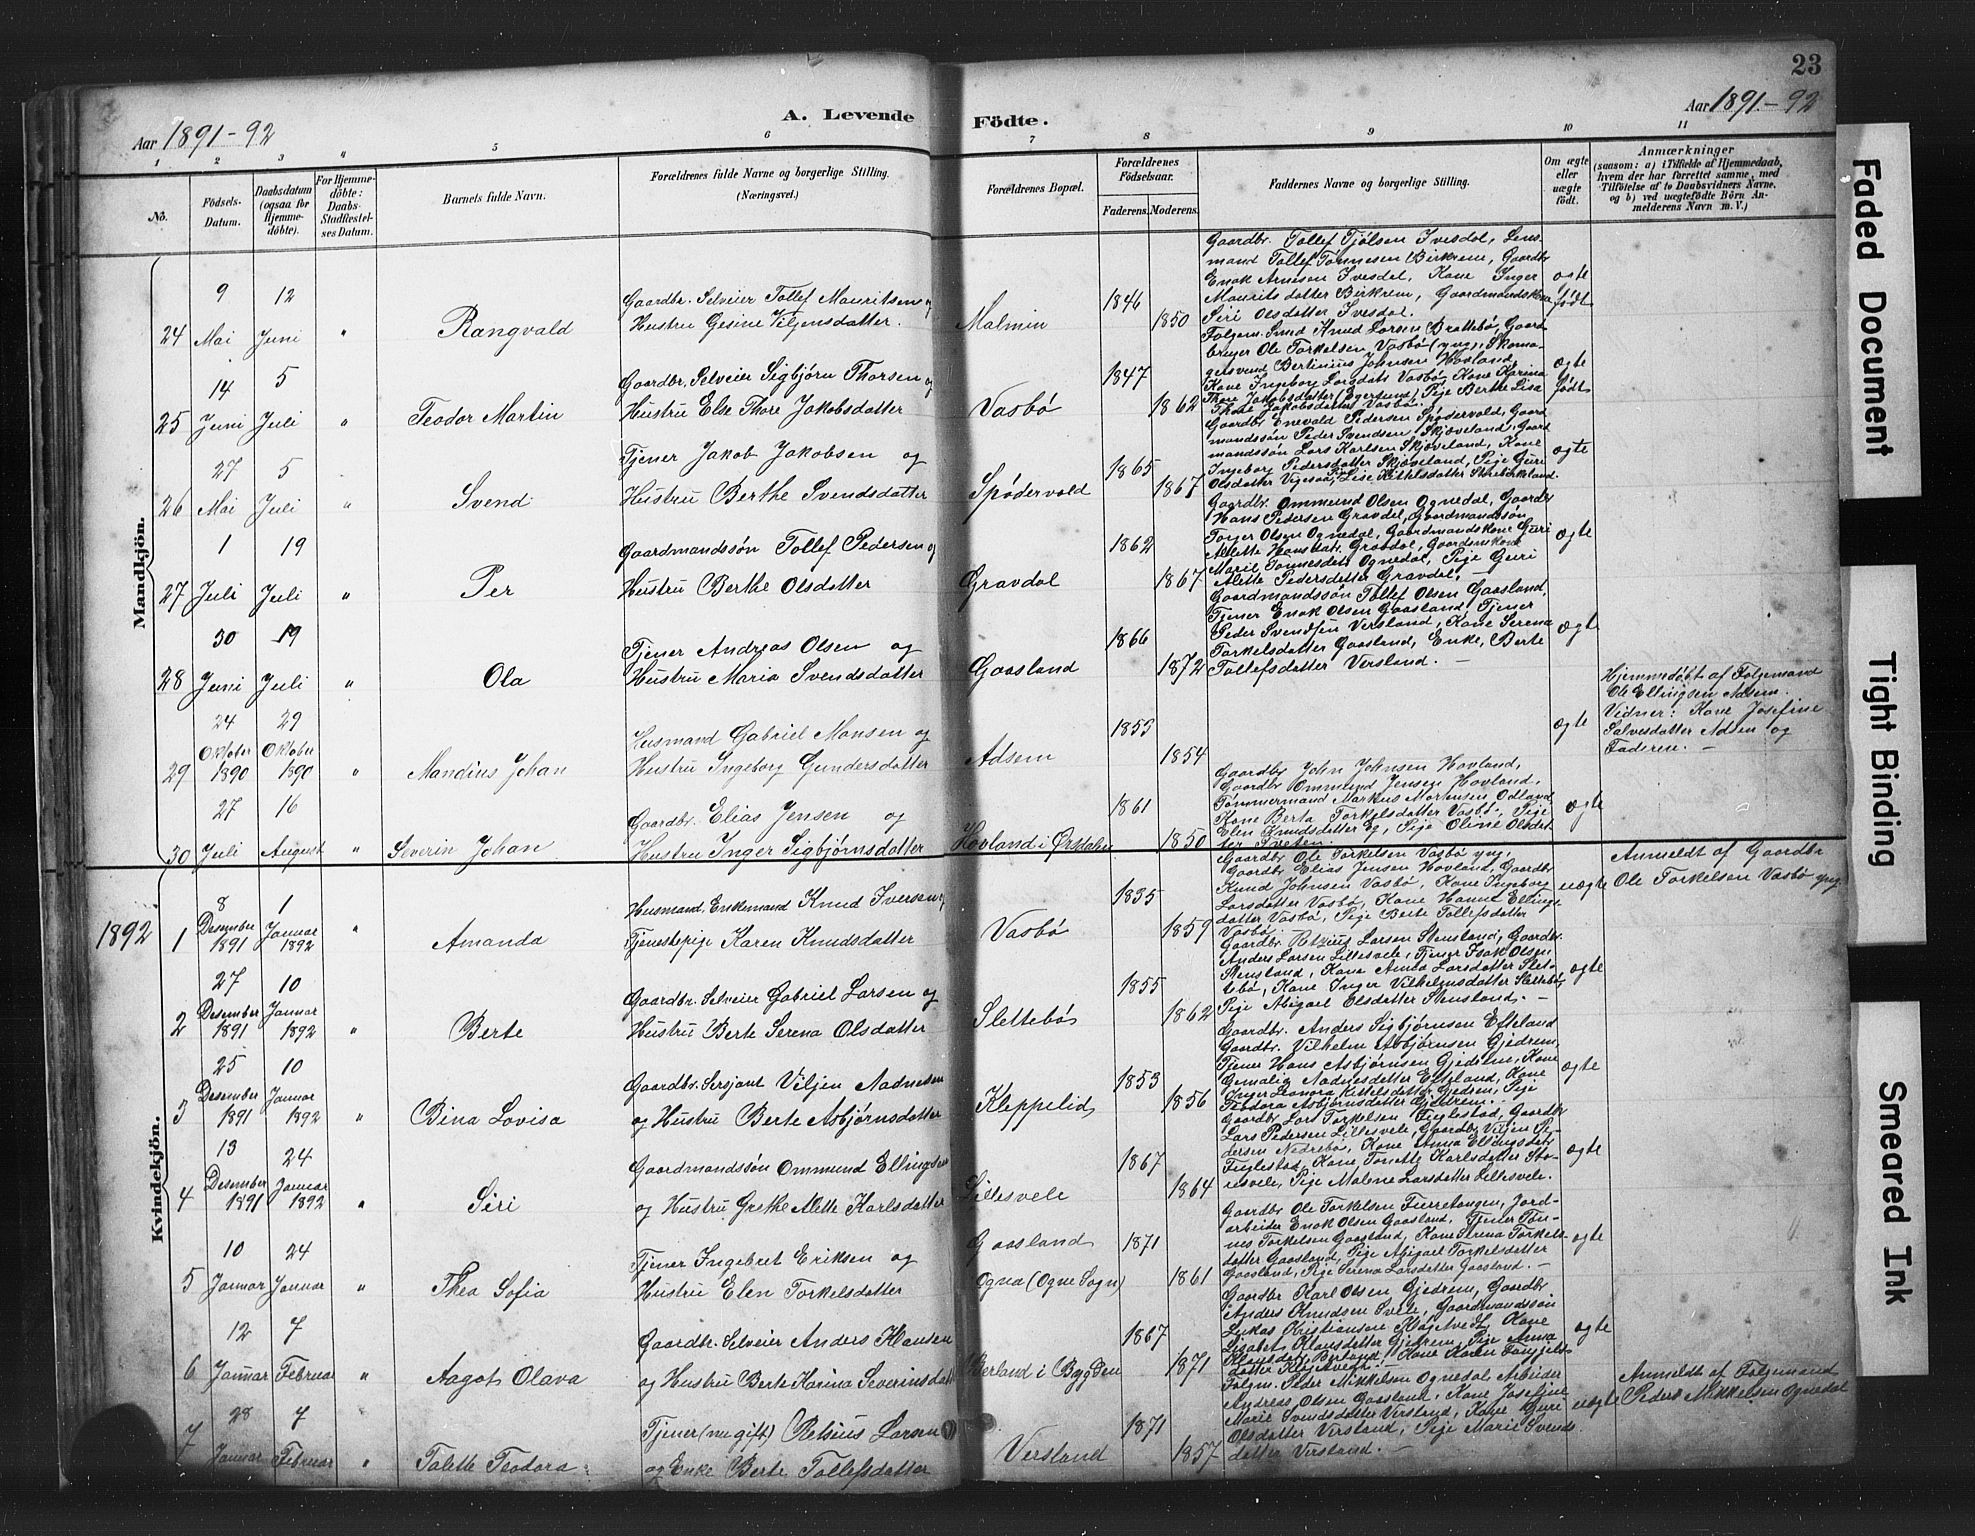 23
Aar 1891-92
A. Levende Födte.
Aar 1891-92
1 2 3 " 5 6 7 8 9 10 11
No.
Födsels-Datum.
Daabsdatum (ogsaa for Hjemmedöbte).
For Hjemmedöbte: Daabs-Stadfestelses Datum.
Barnets fulde Navn.
Forældrenes fulde Navne og borgerlige Stilling. (Næringsvei.)
Forældrenes Bopæl.
Forældrenes Födselsaar.
Faderens. Moderens.
Faddernes Navne og borgerlige Stilling.
Om ægte eller uægte födt.
Anmærkninger
(saasom: a) i Tilfælde af Hjemmedaab, hvem der har forrettet samme, med Tilföielse af to Daabsvidners Navne, og b) ved uægtefödte Börn Anmelderens Navn m. V.)
Mandkjön.
24 9 Mai 12 Juni " Rangvald
Gaardbr. Selveier Tollef Mauritsen og
Hustru Gesine Viljensdatter.
Malmin 1846 1850
Gaardbr. Tollef Tjølsen Ivesdal, Lens-
mand Tollef Tønnesen Birkrem, Gaardbr
Enok Arnesen Ivesdal, Kone Inger
Maurits datter Birkrem, Gaardmandskone
Siri Olsdatter Ivesdal.
ægte født
25 14 Juni 5 Juli " Teodor Martin
Gaardbr. Selveier Sigbjørn Thorsen og
Hustru Else Thore Jakobsdatter
Vasbø 1847 1862
Folgem. Smed Knud Larsen Brattebø, Gaard
bruger Ole Torkelsen Vasbø (yng), Skoma-
gersvend Bertinius Johnsen Hovland,
Kone Ingeborg Larsdatr Vasbø, Kone Karina
Thore Jakobsdatter (Egersund), Pige Berthe Lisa
Thore Jakobsdatter Vasbø.
ægte født
26 27 Mai 5 Juli " Svend
Tjener Jakob Jakobsen og
Hustru Berthe Svendsdatter
Spødervold 1865 1867
Gaardbr Enevald Pedersen Spødervold, Gaard
mandssøn Peder Svendsen Skjæveland, Gaard
mandssøn Lars Karlsen Skjæveland, Kone
Ingeborg Pedersdatter Skjæveland, Pige Guri
Olsdatter Vigesaa, Lise Ketilsdatter
ægte
27 1 Juli 19 Juli " Per
Gaardmandssøn Tollef Pedersen og
Hustru Berthe Olsdatter
Gravdal 1862 1867
Gaardbr. Ommund Olsen Ognedal, Gaardbr
Hans Pedersen Gravdal, Gaardmandssøn
Torger Olsen Ognedal, Gaardmandskone Guri
Alette Hansdatr. Gravdal, Gaardmskone
Maril Tønnesdatr Ognedal, Pige Guri
Alette Pedersdatter Gravdal.
ægte
28 30 Juni 19 Juli " Ola
Tjener Andreas Olsen og
Hustru Maria Svendsdatter
Gaasland 1866 1872
Gaardmandssøn Tollef Olsen Gaasland,
Tjener Enok Olsen Gaasland, Tjener
Peder Svendsen Versland, Kone Serena
Torkelsdatter Gaasland, Enke, Berte
Tollefsdatter Versland. –
ægte
29 24 Oktober 1890 29 Oktober 1890 " Mandius Johan
Husmand Gabriel Monsen og
Hustru Ingeborg Gundersdatter
Adsem 1853 1854
ægte
Hjemmedøbt af Folgemand
Ole Ellingsen Adsem.
Vidner: Kone Josefine
Salvesdatter Adsem og
Faderen. –
30 27 Juli 16 August " Severin Johan
Gaardbr. Elias Jensen og
Hustru Inger Sigbjørnsdatter
Hovland i Ørsdalen 1861 1850
Gaardbr John Johnsen Hovland,
Gaardbr Ommund Jensen Hovland,
Tømmermand Markus Mortensen Odland,
Kone Berta Torkelsdatter Vasbø, Pige
Elen Knudsdatter Eg, Pige Oline Olsdat
ter Sveten.
ægte
Kvindekjön.
1892
1 8 Desember 1891 1 Januar 1892 " Amanda
Husmand, Enkemand Knud Iversen,
Tjenestepige Karen Knudsdatter
Vasbø 1835 1859
Gaardbr Ole Torkelsen Vasbø yng,
Gaardbr Elias Jensen Hovland, Gaardbr
Knud Johnsen Vasbø, Kone Ingeborg
Larsdatter Vasbø, Kone Hanne Ellings
datter Vasbø, Pige Berte Tollefsdatter
Vasbø. –
uægte
Anmeldt af Gaardbr
Ole Torkelsen Vasbø yng.
2 27 Desember 1891 10 Januar 1892 " Berte
Gaardbr. Selveier Gabriel Larsen og
Hustru Berte Serena Olsdatter
Slettebø 1855 1862
Gaardbr. Retzius Larsen Stensland, Gaardbr.
Anders Larsen Lillesvele, Tjener Isak Olsen
Stensland, Kone Anna Larsdatter Slet-
tebø, Kone Inger Vilhelmsdatter Sletebø,
Pige Abigael Olsdatter Stensland. –
ægte
3 25 Desember 1891 10 Januar 1892 " Bina Lovisa
Gaardbr. Sersjant Viljen Aadnesen
og Hustru Berte Asbjørnsdatter
Kleppelid 1853 1856
Gaardbr. Anders Sigbjørnsen Efteland
Gaardbr. Vilhelm Asbjørnsen Gjedrem,
Tjener Hans Asbjørnsen Gjedrem, Kone
Gemalia Aadnesdatter Efteland, Kone
Inger Leonora Kittelsdatter Gjedrem, Pige
Feodora Asbjørnsdatter Gjedrem.
ægte
4 13 Desember 1891 24 Januar 1892 " Siri
Gaardmandssøn Ommund Ellingsen
og Hustru Grethe Alette Karlsdatter
Lillesvele 1867 1864
Gaardbr. Lars Torkelsen Fuglestad, Gaardbr
Lars Pedersen Lillesvele, Gaardbr Viljen Pe-
dersen Nedrebø, Kone Anna Ellingsdatr
Fuglestad, Kone Tonette Karlsdatter Sto-
resvele, Pige Malene Larsdatter Lillesvele.
ægte
5 10 Januar 24 Januar " Thea Sofia
Tjener Ingebret Eriksen og
Hustru Elen Torkelsdatter
Gaasland
Ogna (Ogne Sogn) 1871 1861
Gaardbr Ole Torkelsen Furretangen, Jord-
arbeider Enok Olsen Gaasland, Tjener Tøn-
nes Torkelsen Gaasland, Kone Serena Torkels-
datter Gaasland, Pige Abigael Torkelsdatter
Gaasland, Pige Serena Larsdatter Gaasland. –
ægte
6 12 Januar 7 Februar " Aagot Olava
Gaardbr. Selveier Anders Hansen
og Hustru Berte Karina Severinsdatt
Berland i Bygden 1867 1871
Gaardbr Karl Olsen Gjedrem, Gaardbr
Anders Knudsen Svele, Gaardmandssøn
Lukas Kristiansen Kløgetvedt, Kone
Lisabet Klausdatter Gjedrem, Pige Anna
ægte
7 28 Januar 7 Februar " Talette Teodora
Tjener (nu gift) Retsius Larsen
og Enke Berte Tollefsdatter
Versland 1871 1857
Folgm. Peder Mikkelsen Ognedal Arbeider
Andreas Olsen Gaasland, Kone Josefine
Marie Svendsdatter Versland, Kone Guri
Olsdatter Versland, Pige Marie Svends
datter Versland. –
uægte
Anmeldt af Folgemand
Peder Mikkelsen Ognedal
Faded Document
Tight Binding
Smeared Ink